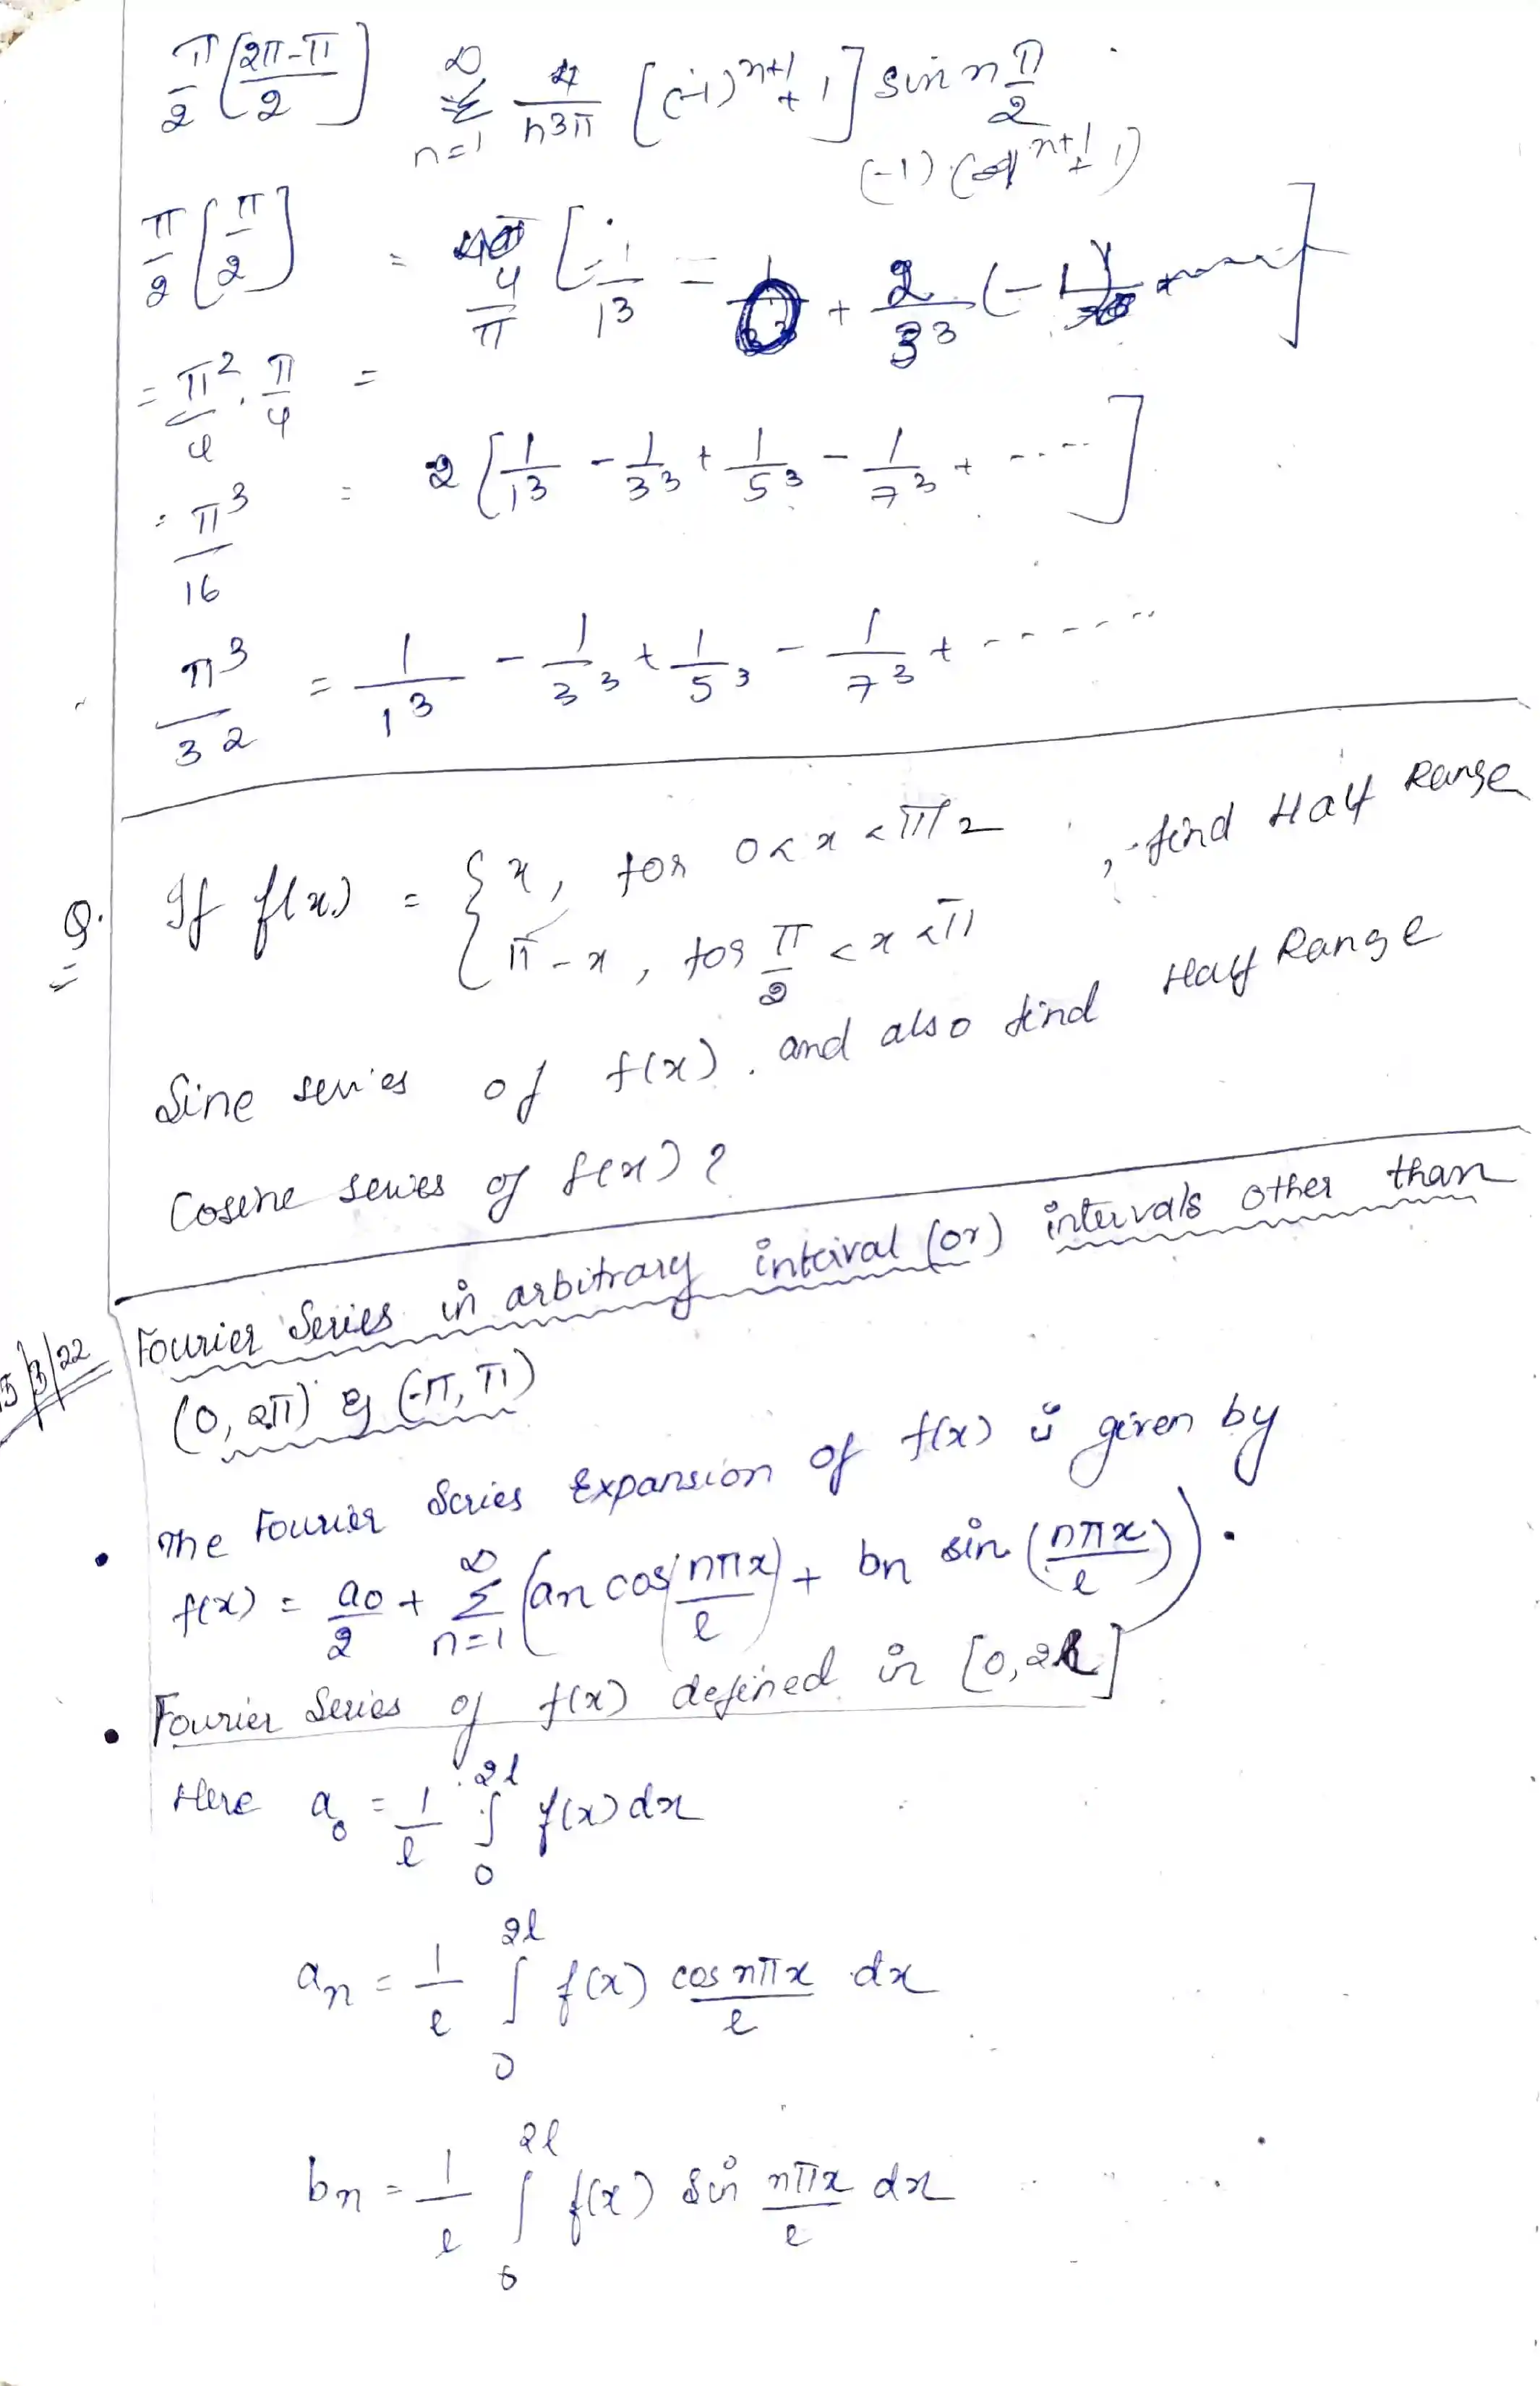 π/2 [(2π-π)/2] = ∞ Σ n=1 4/n3π [(-1)^n+1 + 1] sin n π/2
(-1) (-1^n+1 + 1)
π/2 [π/2] = 4/π [1/1^3 - + 2/3^3 (-1)
= π^2/4 . π/4 =
= π^3/16 = 2 [1/1^3 - 1/3^3 + 1/5^3 - 1/7^3 + ....]
π^3/32 = 1/1^3 - 1/3^3 + 1/5^3 - 1/7^3 + ......
Q. If f(x) = { x, for 0 < x < π/2 , find Half Range
π - x, for π/2 < x < π
Sine series of f(x). and also find Half Range
Cosine series of f(x) ?
15/3/22 Fourier Series in arbitrary interval (or) intervals other than
(0, 2π) & (-π, π)
• The Fourier Series Expansion of f(x) is given by
f(x) = a0/2 + ∞ Σ n=1 (an cos(nπx/l) + bn sin (nπx/l)).
• Fourier Series of f(x) defined in [0, 2l]
Here a0 = 1/l ∫ 0 2l f(x) dx
an = 1/l ∫ 0 2l f(x) cos nπx/l dx
bn = 1/l ∫ 0 2l f(x) sin nπx/l dx